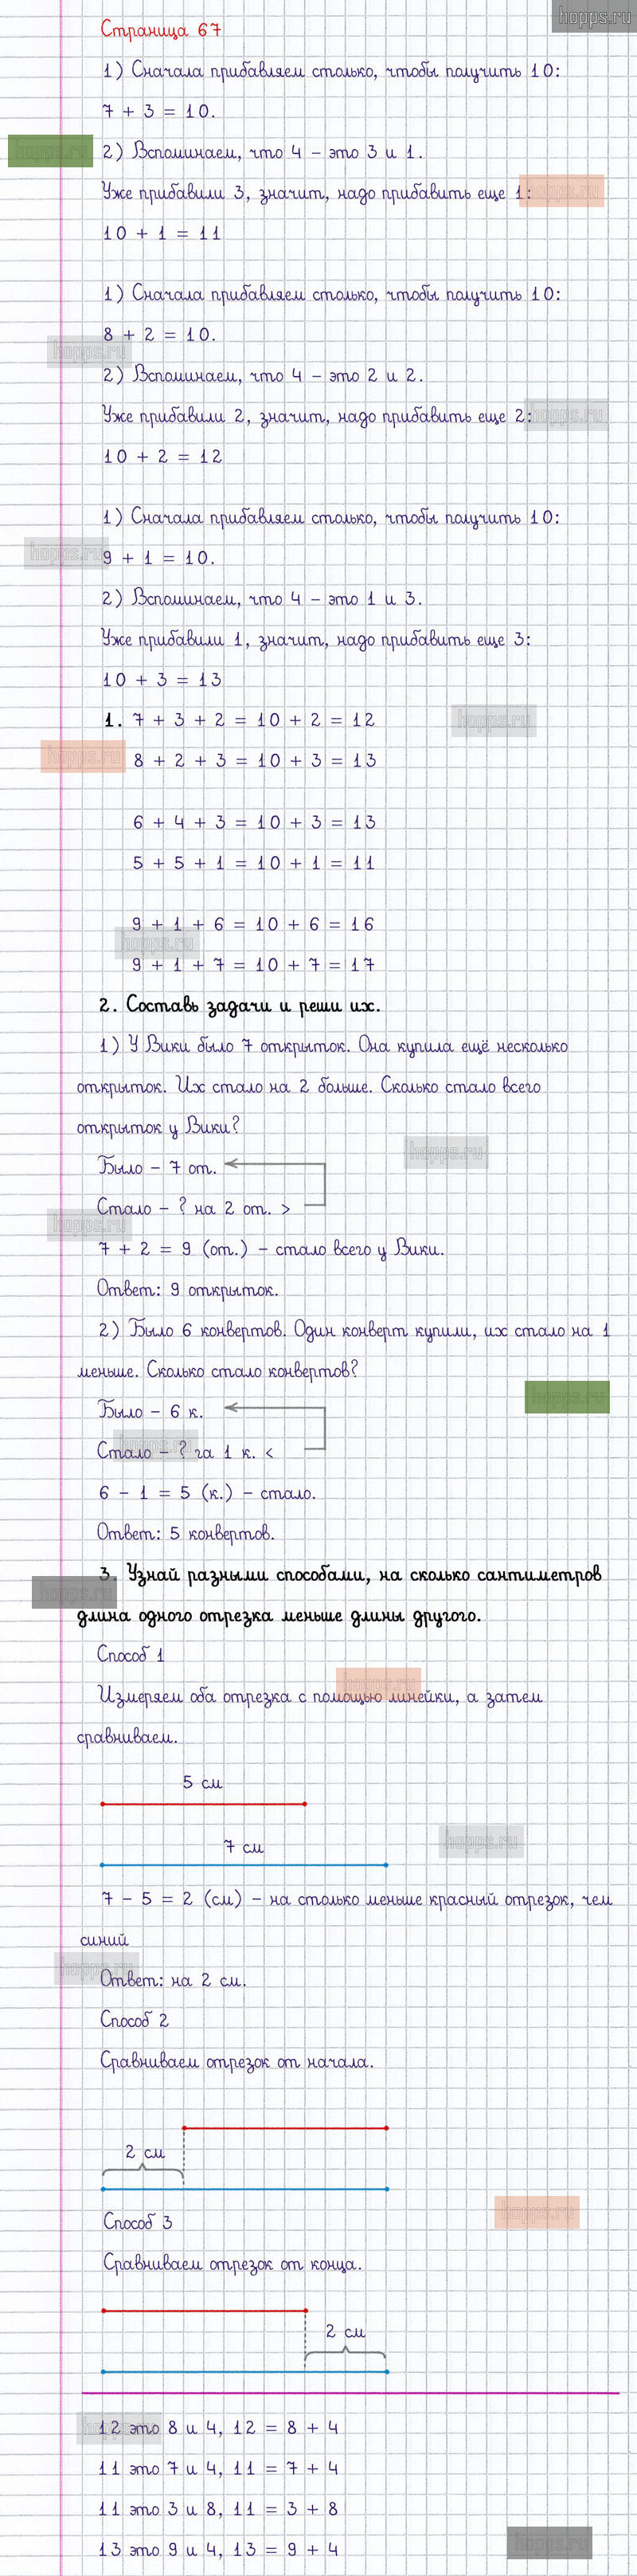 hopps.ru
Страница 67
1) Сначала прибавляем столько, чтобы получить 10:
7 + 3 = 10.
hopps.ru
2) Вспоминаем, что 4 – это 3 и 1.
Уже прибавили 3, значит, надо прибавить еще 1:
hopps.ru
10 + 1 = 11
1) Сначала прибавляем столько, чтобы получить 10:
8 + 2 = 10.
hopps.ru
2) Вспоминаем, что 4 – это 2 и 2.
Уже прибавили 2, значит, надо прибавить еще 2:
hopps.ru
10 + 2 = 12
1) Сначала прибавляем столько, чтобы получить 10:
hopps.ru
9 + 1 = 10.
2) Вспоминаем, что 4 – это 1 и 3.
Уже прибавили 1, значит, надо прибавить еще 3:
10 + 3 = 13
1. 7 + 3 + 2 = 10 + 2 = 12
hopps.ru
hopps.ru
8 + 2 + 3 = 10 + 3 = 13
6 + 4 + 3 = 10 + 3 = 13
5 + 5 + 1 = 10 + 1 = 11
9 + 1 + 6 = 10 + 6 = 16
hopps.ru
9 + 1 + 7 = 10 + 7 = 17
2. Составь задачи и реши их.
1) У Вики было 7 открыток. Она купила ещё несколько
открыток. Их стало на 2 больше. Сколько стало всего
открыток у Вики?
hopps.ru
Было – 7 от.
Стало – ? на 2 от. >
hopps.ru
7 + 2 = 9 (от.) – стало всего у Вики.
Ответ: 9 открыток.
2) Было 6 конвертов. Один конверт купили, их стало на 1
меньше. Сколько стало конвертов?
hopps.ru
Было – 6 к.
hopps.ru
Стало – ? га 1 к. <
6 – 1 = 5 (к.) – стало.
Ответ: 5 конвертов.
3. Узнай разными способами, на сколько сантиметров
hopps.ru
длина одного отрезка меньше длины другого.
Способ 1
hopps.ru
Измеряем оба отрезка с помощью линейки, а затем
сравниваем.
5 см
7 см
hopps.ru
7 – 5 = 2 (см) – на столько меньше красный отрезок, чем
синий
hopps.ru
Ответ: на 2 см.
Способ 2
Сравниваем отрезок от начала.
2 см
hopps.ru
Способ 3
Сравниваем отрезок от конца.
2 см
hopps.ru
12 это 8 и 4, 12 = 8 + 4
11 это 7 и 4, 11 = 7 + 4
11 это 3 и 8, 11 = 3 + 8
hopps.ru
13 это 9 и 4, 13 = 9 + 4